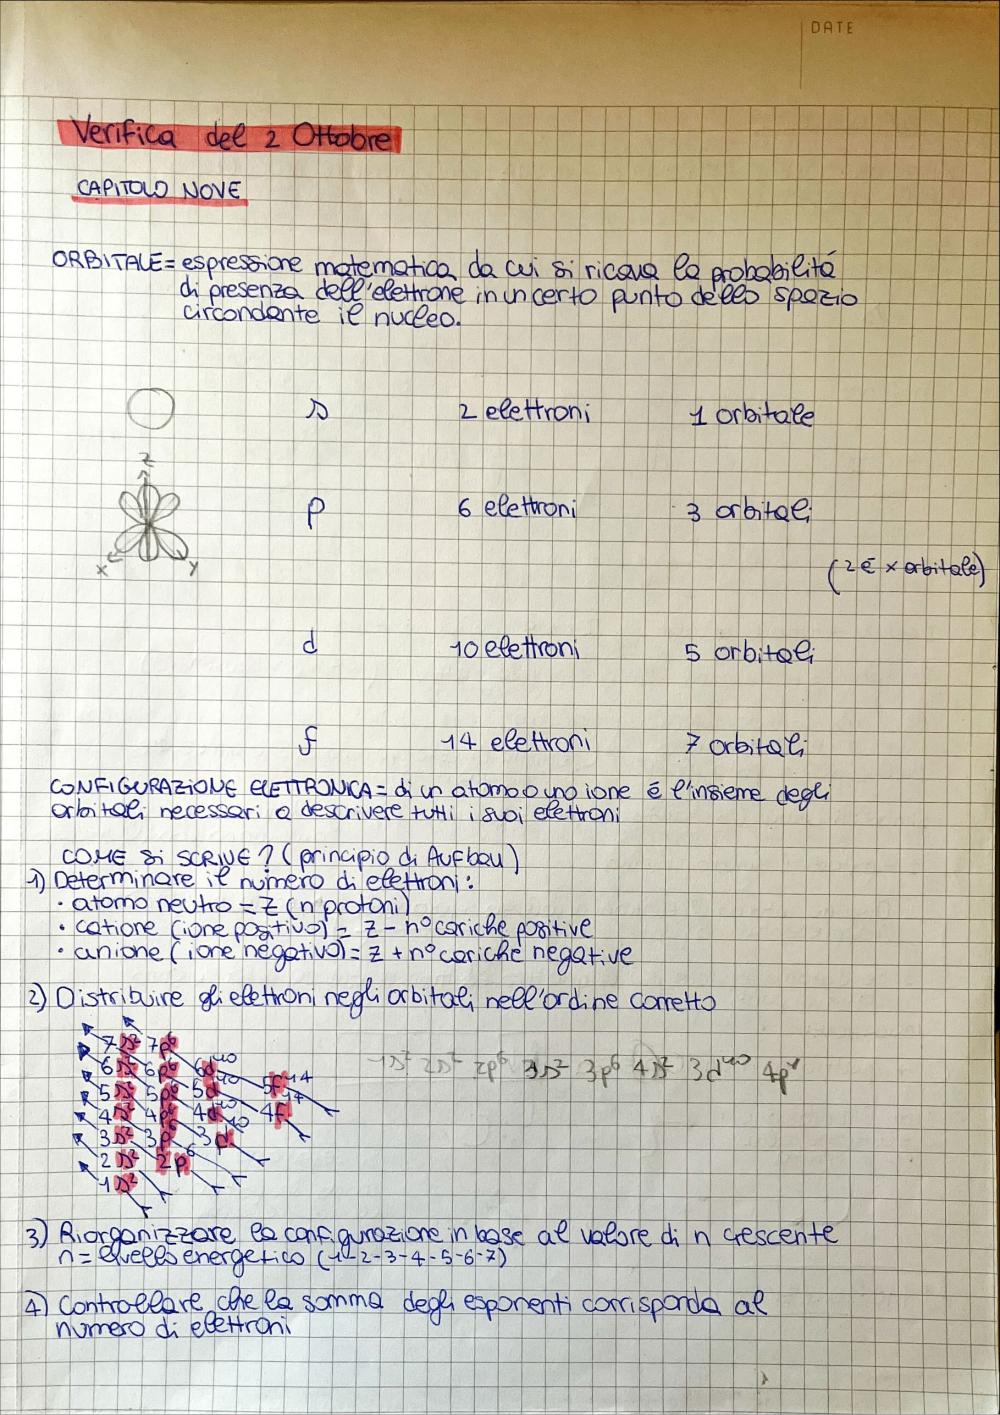 DATE
Verifica del 2 Ottobre
CAPITOLO NOVE
ORBITALE = espressione matematica da cui si ricava la probabilitá
di presenza dell'elettrone in un certo punto dello spazio
circondante il nucleo.
s 2 elettroni 1 orbitale
z
p 6 elettroni 3 orbitali
x y
(2ē x orbitale)
d 10 elettroni 5 orbitali
f 14 elettroni 7 orbitali
CONFIGURAZIONE ELETTRONICA = di un atomo o uno ione é l'insieme degli
orbitali necessari a descrivere tutti i suoi elettroni
COME SI SCRIVE? (principio di Aufbau)
1) Determinare il numero di elettroni:
· atomo neutro = Z (n protoni)
· catione (ione positivo) = Z - n° cariche positive
· anione (ione negativo) = Z + n° cariche negative
2) Distribuire gli elettroni negli orbitali nell'ordine corretto
7s² 7p⁶
6s² 6p⁶ 6d¹⁰
5s² 5p⁶ 5d¹⁰ 5f¹⁴
4s² 4p⁶ 4d¹⁰ 4f¹⁴
3s² 3p⁶ 3d¹⁰
2s² 2p⁶
1s²
1s² 2s² 2p⁶ 3s² 3p⁶ 4s² 3d¹⁰ 4p¹
3) Riorganizzare la configurazione in base al valore di n crescente
n = livello energetico (1-2-3-4-5-6-7)
4) Controllare che la somma degli esponenti corrisponda al
numero di elettroni